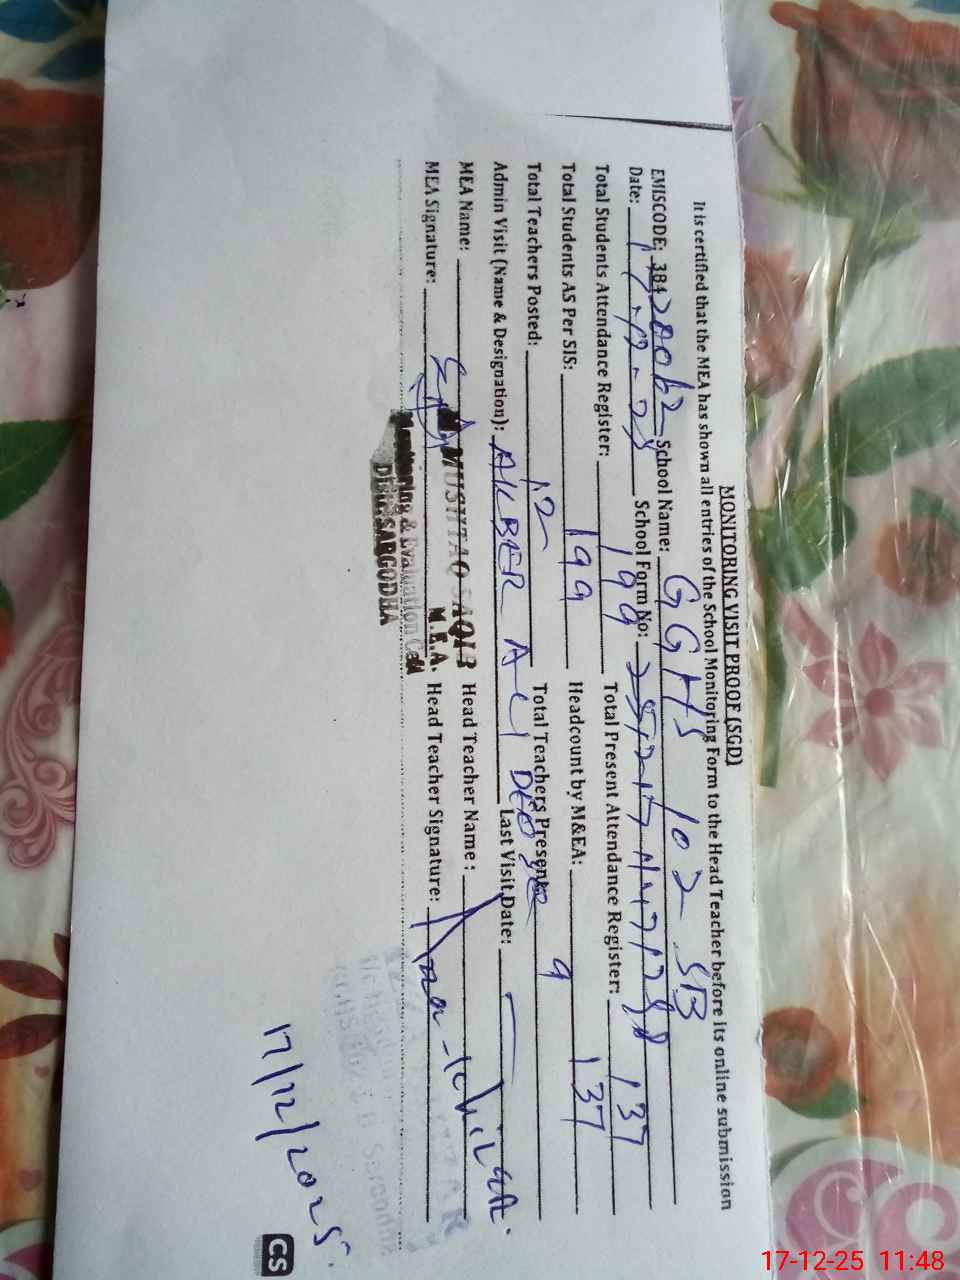 MONITORING VISIT PROOF (SGD)
It is certified that the MEA has shown all entries of the School Monitoring Form to the Head Teacher before its online submission
EMISCODE: 38420062 School Name: GGHS 102 SB
Date: 17-12-25 School Form No:
Total Students Attendance Register: 199 Total Present Attendance Register: 137
Total Students AS Per SIS: 199 Headcount by M&EA: 137
Total Teachers Posted: 12 Total Teachers Present: 9
Admin Visit (Name & Designation): AKBER ALI DEO SE Last Visit Date: —
MEA Name: MUSHTAQ SAQIB Head Teacher Name:
M.E.A.
MEA Signature: Head Teacher Signature:
Monitoring & Evaluation Cell
SARGODHA
17/12/2025
CS
17-12-25 11:48